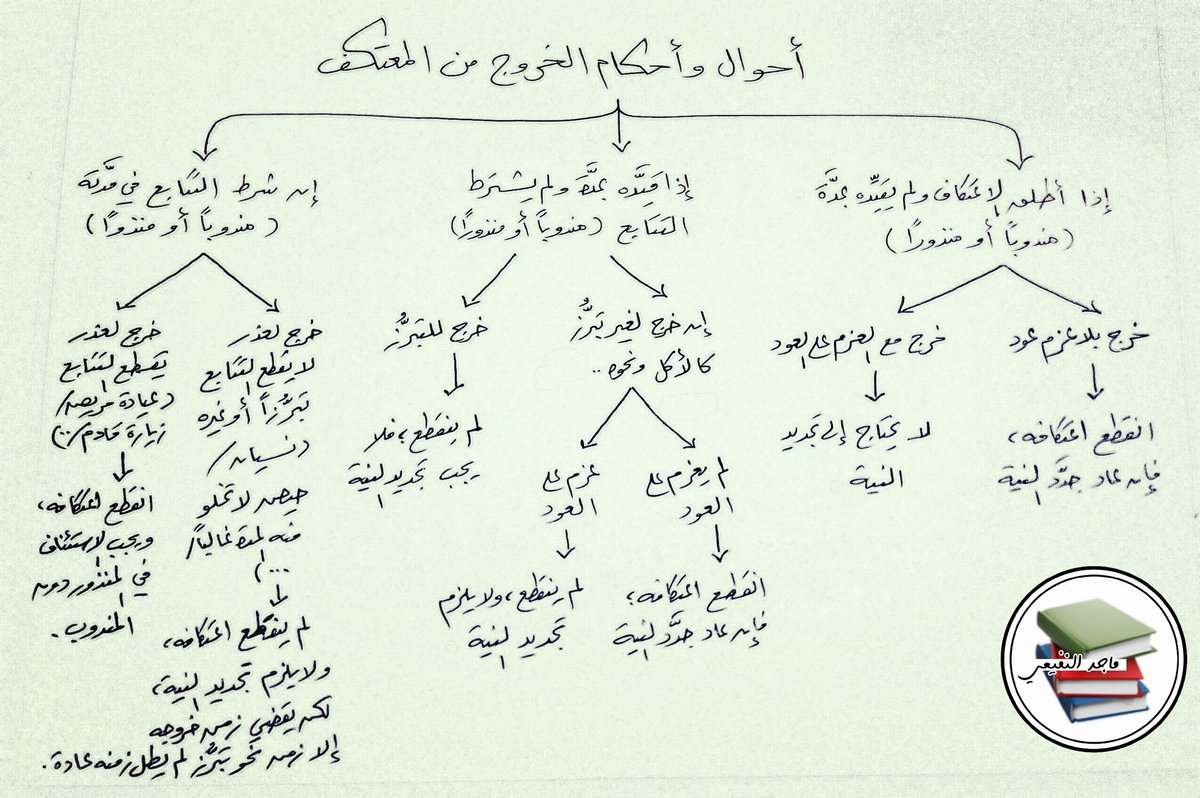 أحوال وأحكام الخروج من المعتكف
إذا أطلق الاعتكاف ولم يقيِّده بمدَّة
(مندوباً أو منذوراً)
خرج بلا عزم عود
انقطع اعتكافه،
فإن عاد جدَّد النية
خرج مع العزم على العود
لا يحتاج إلى تجديد
النية
إذا قيَّده بمدَّة ولم يشترط
التتابع (مندوباً أو منذوراً)
إن خرج لغير تبرُّز
كالأكل ونحوه ..
لم يعزم على
العود
انقطع اعتكافه؛
فإن عاد جدَّد النية
عزم على
العود
لم ينقطع، ولا يلزم
تجديد النية
خرج للتبرُّز
لم ينقطع؛ فلا
يجب تجديد النية
إن شرط التتابع في مدَّته
(مندوباً أو منذوراً)
خرج لعذر
لا يقطع التتابع
تبرُّزاً أو غيره
(نسيان/
حيض لا تخلو
منه المدة غالباً/
...)
لم ينقطع اعتكافه،
ولا يلزم تجديد النية،
لكن يقضي زمن خروجه
إلا زمن نحو تبرُّز لم يطل زمنه عادة.
خرج لعذر
يقطع التتابع
(عيادة مريض/
زيارة قادم/..)
انقطع اعتكافه،
ويجب الاستئناف
في المنذور دون
المندوب.
ماجد النفيعي